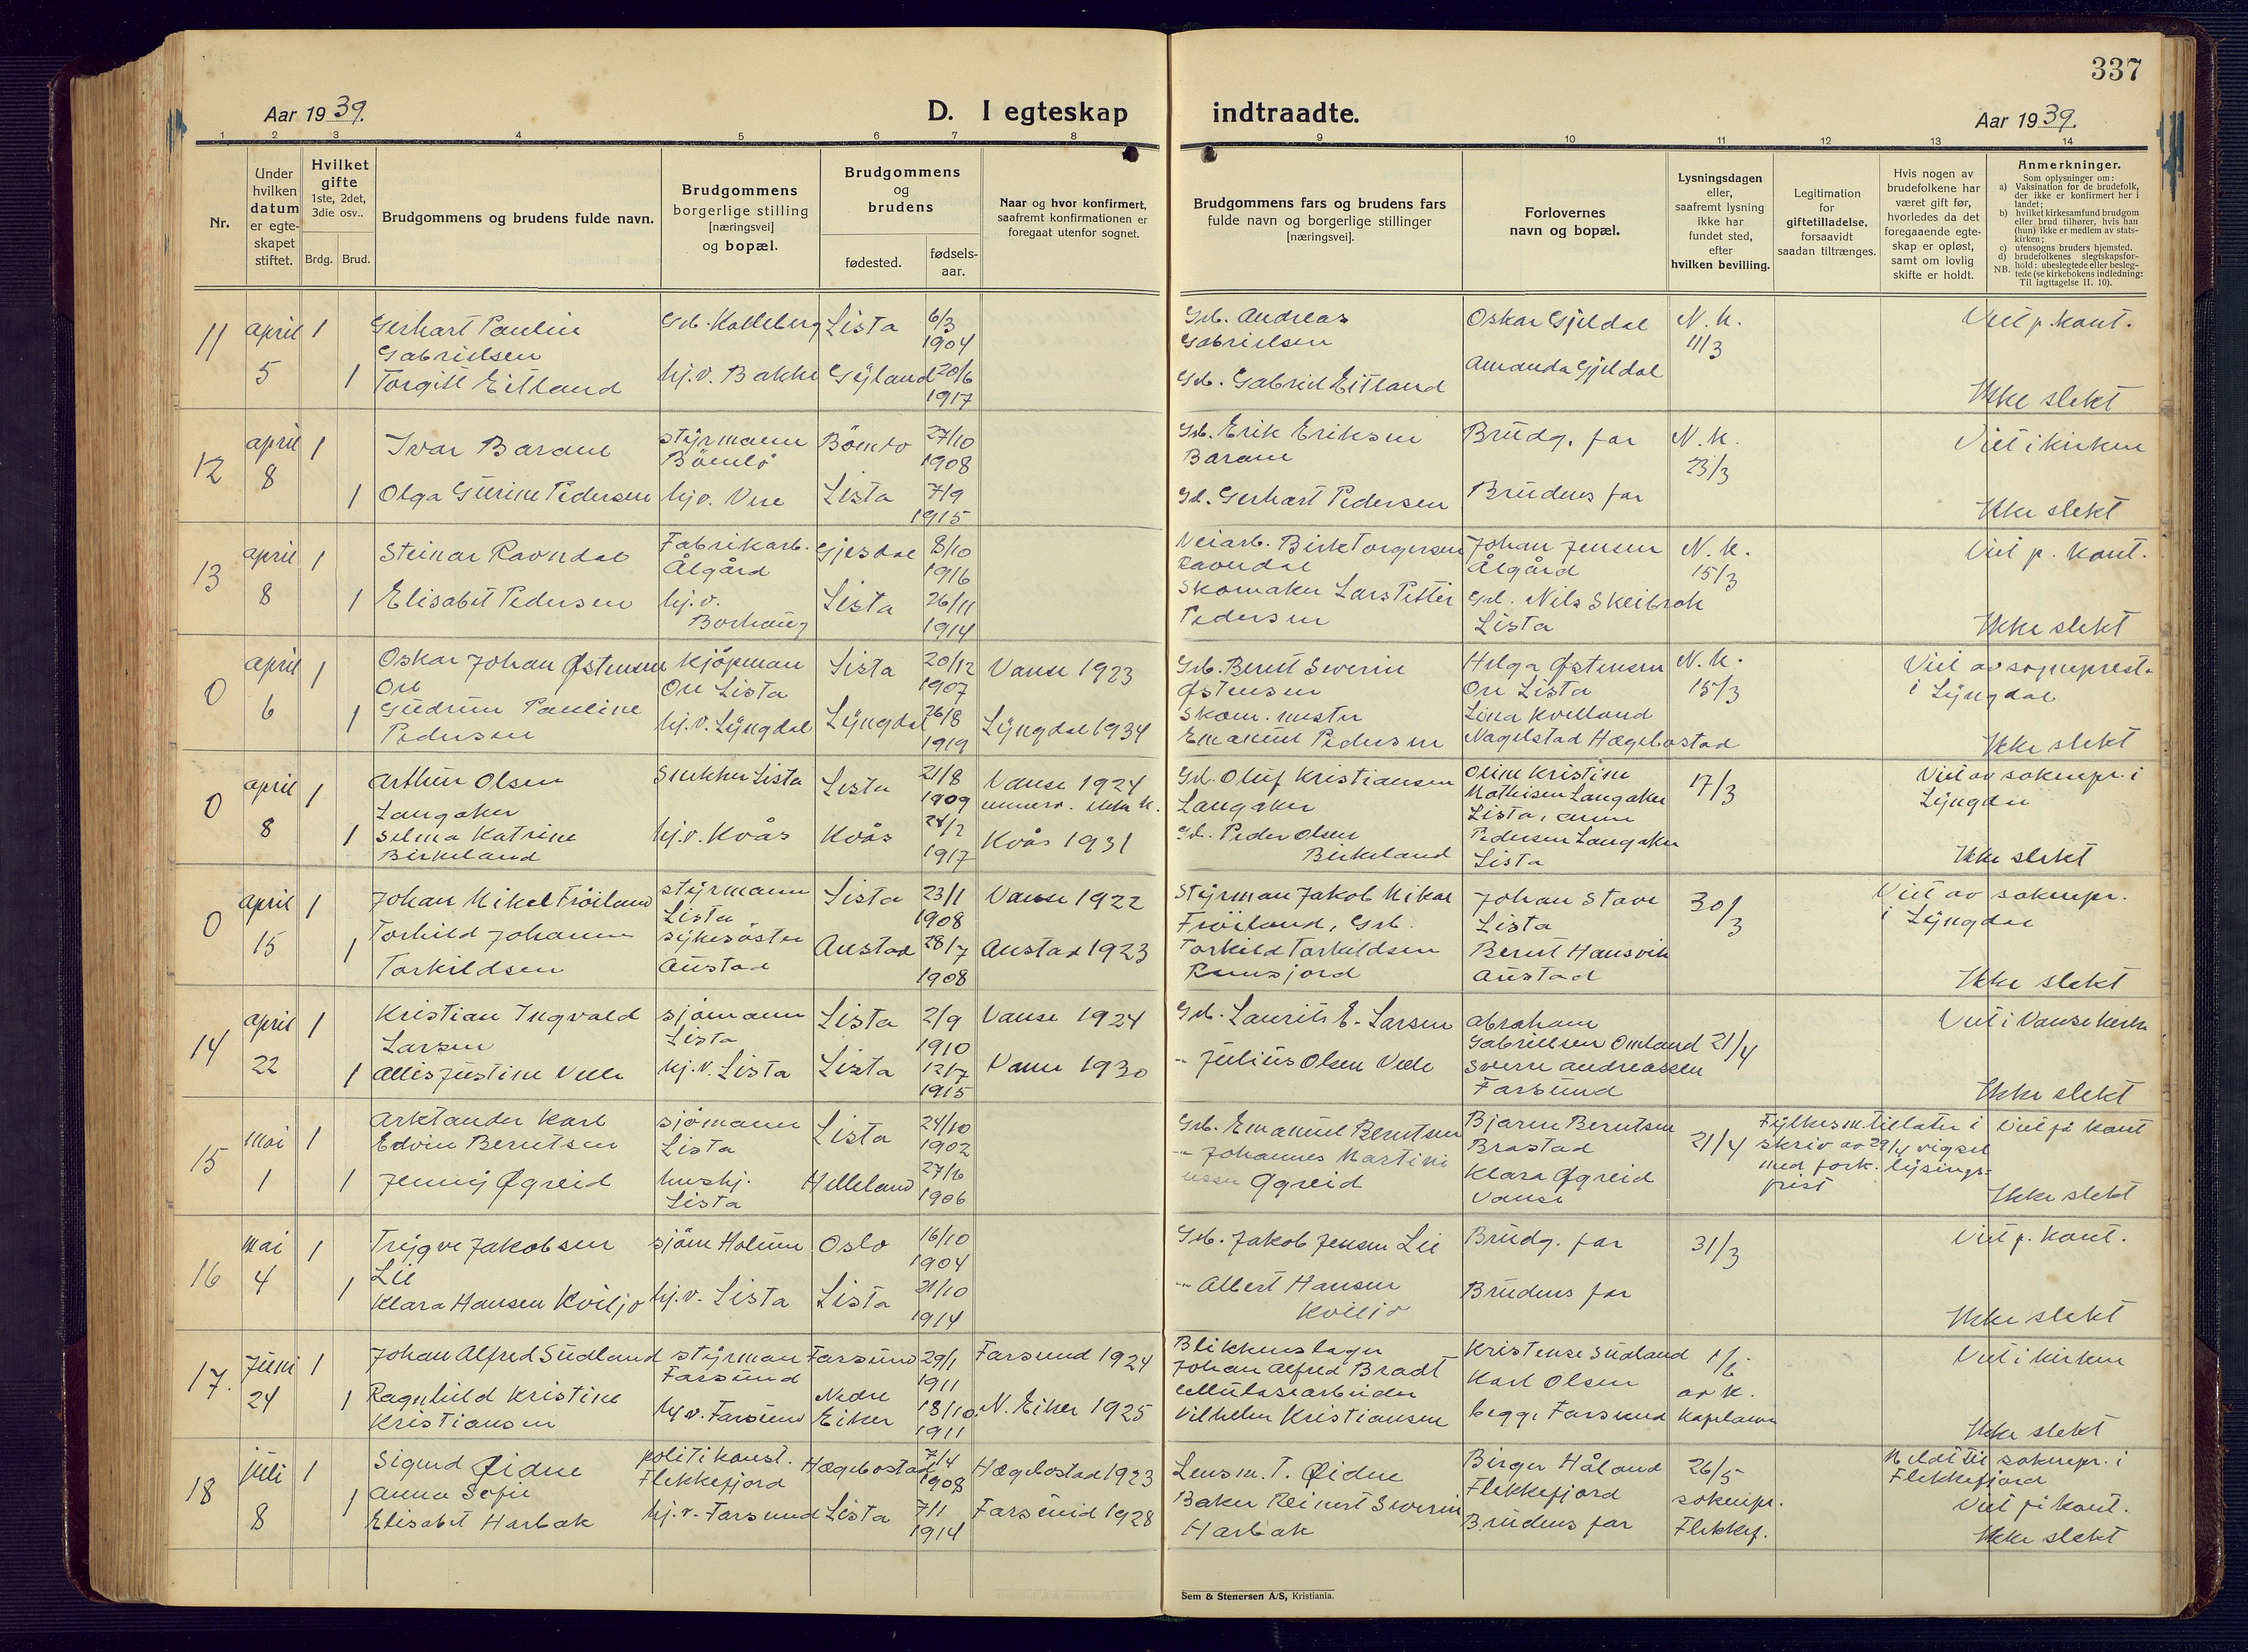 337
Aar 1939.
D. I egteskap indtraadte.
Aar 1939.
1 2 3 4 5 6 7 8 9 10 11 12 13 14
Nr.
Under
hvilken
datum
er egte-
skapet
stiftet.
Hvilket
gifte
1ste, 2det,
3die osv..
Brdg. Brud.
Brudgommens og brudens fulde navn.
Brudgommens
borgerlige stilling
[næringsvei]
og bopæl.
Brudgommens
og
brudens
fødested.
fødsels-
aar.
Naar og hvor konfirmert,
saafremt konfirmationen er
foregaat utenfor sognet.
Brudgommens fars og brudens fars
fulde navn og borgerlige stillinger
[næringsvei].
Forlovernes
navn og bopæl.
Lysningsdagen
eller,
saafremt lysning
ikke har
fundet sted,
efter
hvilken bevilling.
Legitimation
for
giftetilladelse,
forsaavidt
saadan tiltrænges.
Hvis nogen av
brudefolkene har
været gift før,
hvorledes da det
foregaaende egte-
skap er opløst,
samt om lovlig
skifte er holdt.
Anmerkninger.
Som oplysninger om:
a) Vaksination for de brudefolk,
der ikke er konfirmert her i
landet;
b) hvilket kirkesamfund brudgom
eller brud tilhører, hvis han
(hun) ikke er medlem av stats-
kirken;
c) utensogns bruders hjemsted.
d) brudefolkenes slegtskapsfor-
NB. hold: ubeslegtede eller besleg-
tede (se kirkebokens indledning:
Til iagttagelse II. 10).
11 april 5 1 Gerhart Paulin Gabrielsen Grb. Kalleberg Lista 6/3 1904 Grb. Andreas Gabrielsen Oskar Gjeldal N. K. 11/3 Viet p. kont.
1 Torgill Eitland hj.v. Bakke Gyland 20/6 1917 Grb. Gabriel Eitland Amanda Gjeldal Ikke slekt
12 april 8 1 Ivar Barane styrmann Bömlö Bömlo 27/10 1908 Grb. Erik Eriksen Barane Brudg. far N. K. 23/3 Viet i kirken
1 Olga Gurine Pedersen hj.v. Vere Lista 7/9 1915 Gd. Gerhart Pedersen Brudens far Ikke slekt
13 april 8 1 Steinar Ravndal Fabrikarb. Ålgård Gjesdal 8/10 1916 Veiarb. Birk Torgersen Ravndal Johan Jensen Ålgård N. K. 15/3 Viet p. kont.
1 Elisabet Pedersen hj.v. Borhaug Lista 26/11 1914 Skomaker Lars Petter Pedersen Grb. Nils Skeibrok Lista Ikke slekt
0 april 6 1 Oskar Johan Østensen Ore Kjöpman Ore Lista Lista 20/12 1907 Vanse 1923 Grb. Bernt Severin Østensen Helga Østensen Ore Lista N. K. 15/3 Viet av sogneprest. i Lyngdal
1 Gudrun Pauline Pedersen hj.v. Lyngdal Lyngdal 26/8 1919 Lyngdal 1934 Skom. mester Emanuel Pedersen Lina Kvelland Nagelstad Hægebostad Ikke slekt
0 april 8 1 Arthur Olsen Langaker Snekker Lista Lista 21/8 1909 Vanse 1924 Grb. Oluf Kristiansen Langaker Oline Kristine Mathisen Langaker Lista, 17/3 Viet av soknepr. i Lyngdal
1 Selma Katrine Birkeland hj.v. Kvås Kvås 24/2 1917 Kvås 1931 Gd. Peder Olsen Birkeland Pedersen Langaker Lista Ikke slekt
0 april 15 1 Johan Mikal Fröiland styrmann Lista Lista 23/1 1908 Vanse 1922 Styrman Jakob Mikal Fröiland, Grb. Johan Stave Lista 30/3 Viet av soknepr. i Lyngdal
1 Torhild Johanne Torkildsen sykesöster Austad Austad 28/7 1908 Austad 1923 Torkild Torkildsen Bernt Hansvik Austad Ikke slekt
14 april 22 1 Kristian Ingvald Larsen sjömann Lista Lista 2/9 1910 Vanse 1924 Grb. Laurits E. Larsen Abraham Gabrielsen Omland 21/4 Viet i Vanse kirke
1 Allis Justine Velle hj.v. Lista Lista 12/7 1915 Vanse 1930 -"- Julius Olsen Velle Sverre Andreassen Farsund Ikke slekt
15 mai 1 1 Arktander Karl Edvin Berntsen sjömann Lista Lista 24/10 1902 Grb. Emanuel Berntsen Bjarne Berntsen Brastad 21/4 Fylkesm. tillater i skriv av 29/4 vigsel med fork. lysings-frist Viet på kont
1 Jenny Øgreid hushj. Lista Helleland 27/6 1906 -"- Johannes Martini Øgreid Klara Øgreid Vanse Ikke slekt
16 mai 4 1 Trygve Jakobsen Lie sjöm Holum Oslo 16/10 1904 Grb. Jakob Jensen Lie Brudg. far 31/3 Viet p. kont.
1 Klara Hansen Kviljo hj.v. Lista Lista 21/10 1914 -"- Albert Hansen Kviljo Brudens far Ikke slekt
17. Juni 24 1 Johan Alfred Sudland styrman Farsund Farsund 29/1 1911 Farsund 1924 Blikkenslager Johan Alfred Bradt Kristense Sudland 1/6 av K. Kapelanen Viet i kirken
1 Ragnhild Kristine Kristiansen hj.v. Farsund Nedre Eiker 18/10 1911 N. Eiker 1925 Cellulosearbeider Vilhelm Kristiansen Karl Olsen begge Farsund Ikke slekt
18 juli 8 1 Sigurd Øidne politikonst. Flekkefjord Hægebostad 7/4 1908 Hægebostad 1923 Lensm. T. Øidne Birger Håland Flekkefjord 26/5 soknepr. Flekkef. Meldt til soknepr. i Flekkefjord
1 Anna Sofie Elisabet Harbak hj.v. Farsund Lista 7/1 1914 Farsund 1928 Baker Reinert Severin Harbak Brudens far Viet på kont. Ikke slekt
Sem & Stenersen A/S, Kristiania.